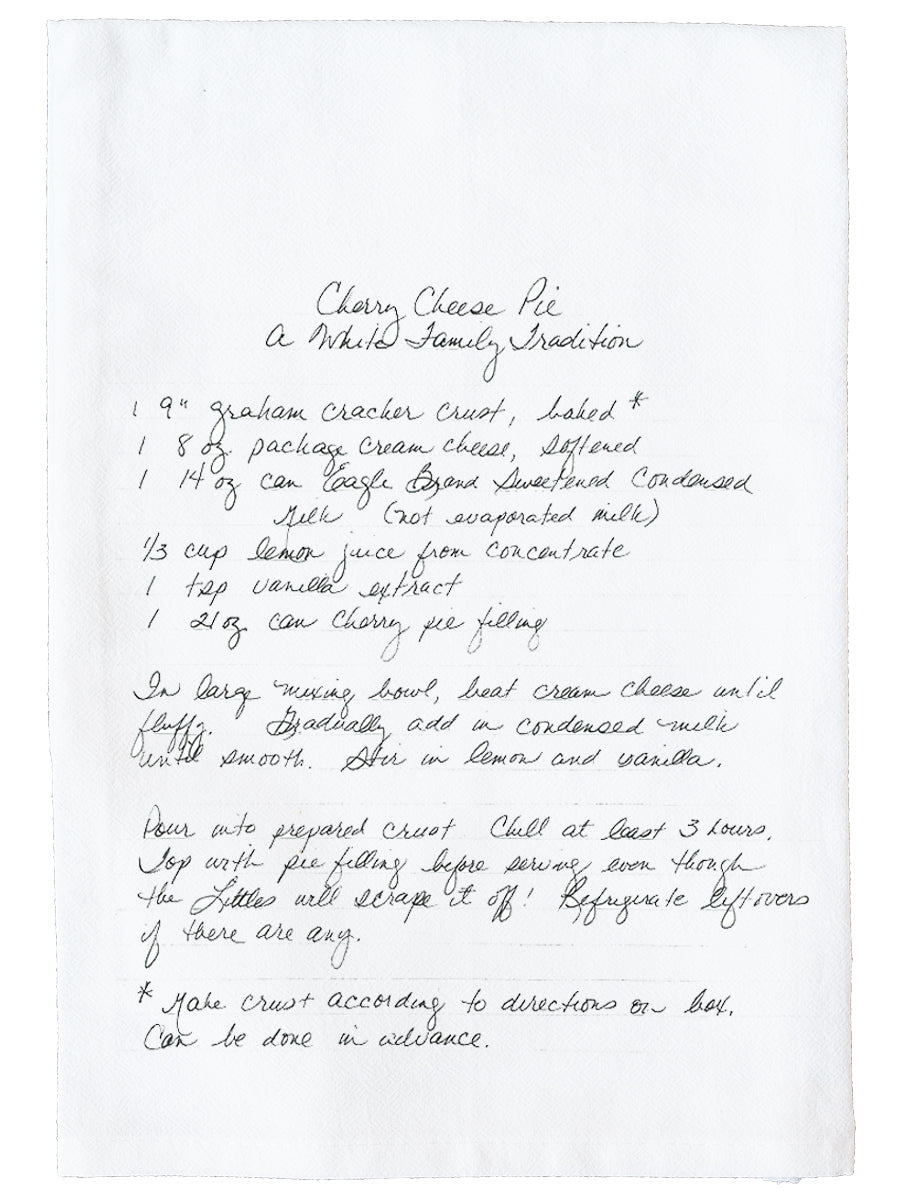 Cherry Cheese Pie
A White Family Tradition
1 9" graham cracker crust, baked *
1 8 oz. package cream cheese, softened
1 14 oz can Eagle Brand Sweetened Condensed
Milk (not evaporated milk)
1/3 cup lemon juice from concentrate
1 tsp vanilla extract
1 21 oz can Cherry pie filling
In large mixing bowl, beat cream cheese until
fluffy. Gradually add in condensed milk
until smooth. Stir in lemon and vanilla.
Pour into prepared crust Chill at least 3 hours.
Top with pie filling before serving even though
the Littles will scrape it off! Refrigerate leftovers
if there are any.
* Make crust according to directions on box.
Can be done in advance.